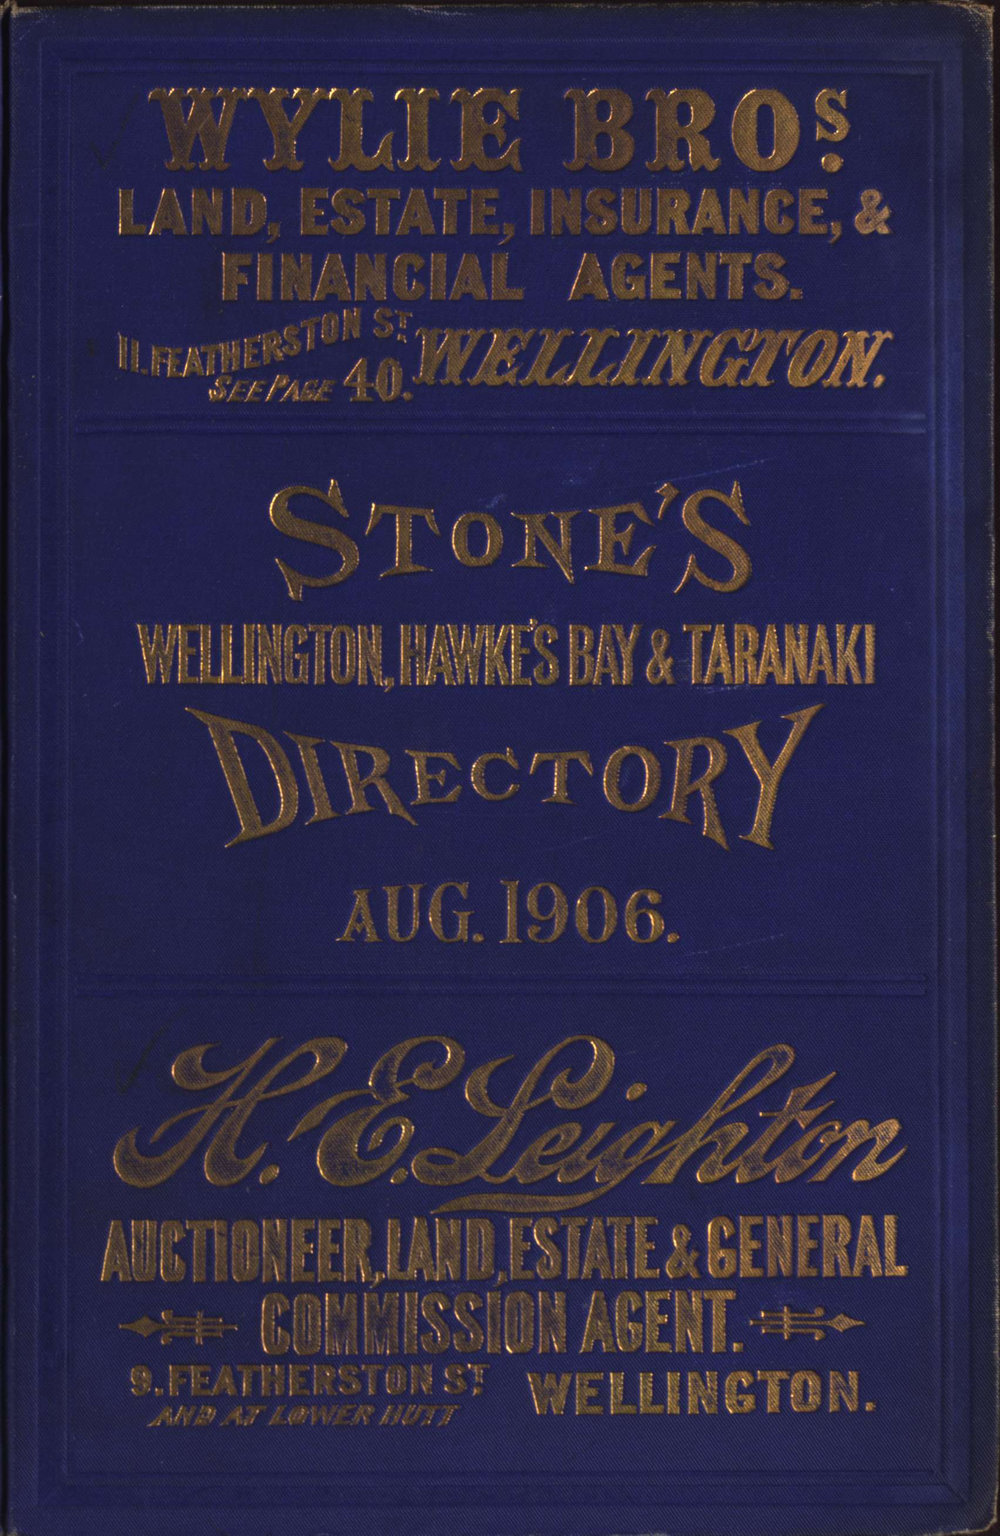 WYLIE BROS.
LAND, ESTATE, INSURANCE, &
FINANCIAL AGENTS.
11. FEATHERSTON ST. WELLINGTON.
SEE PAGE 40.
STONE'S
WELLINGTON, HAWKE'S BAY & TARANAKI
DIRECTORY
AUG. 1906.
H. E. Leighton
AUCTIONEER, LAND, ESTATE & GENERAL
COMMISSION AGENT.
9. FEATHERSTON ST. WELLINGTON.
AND AT LOWER HUTT